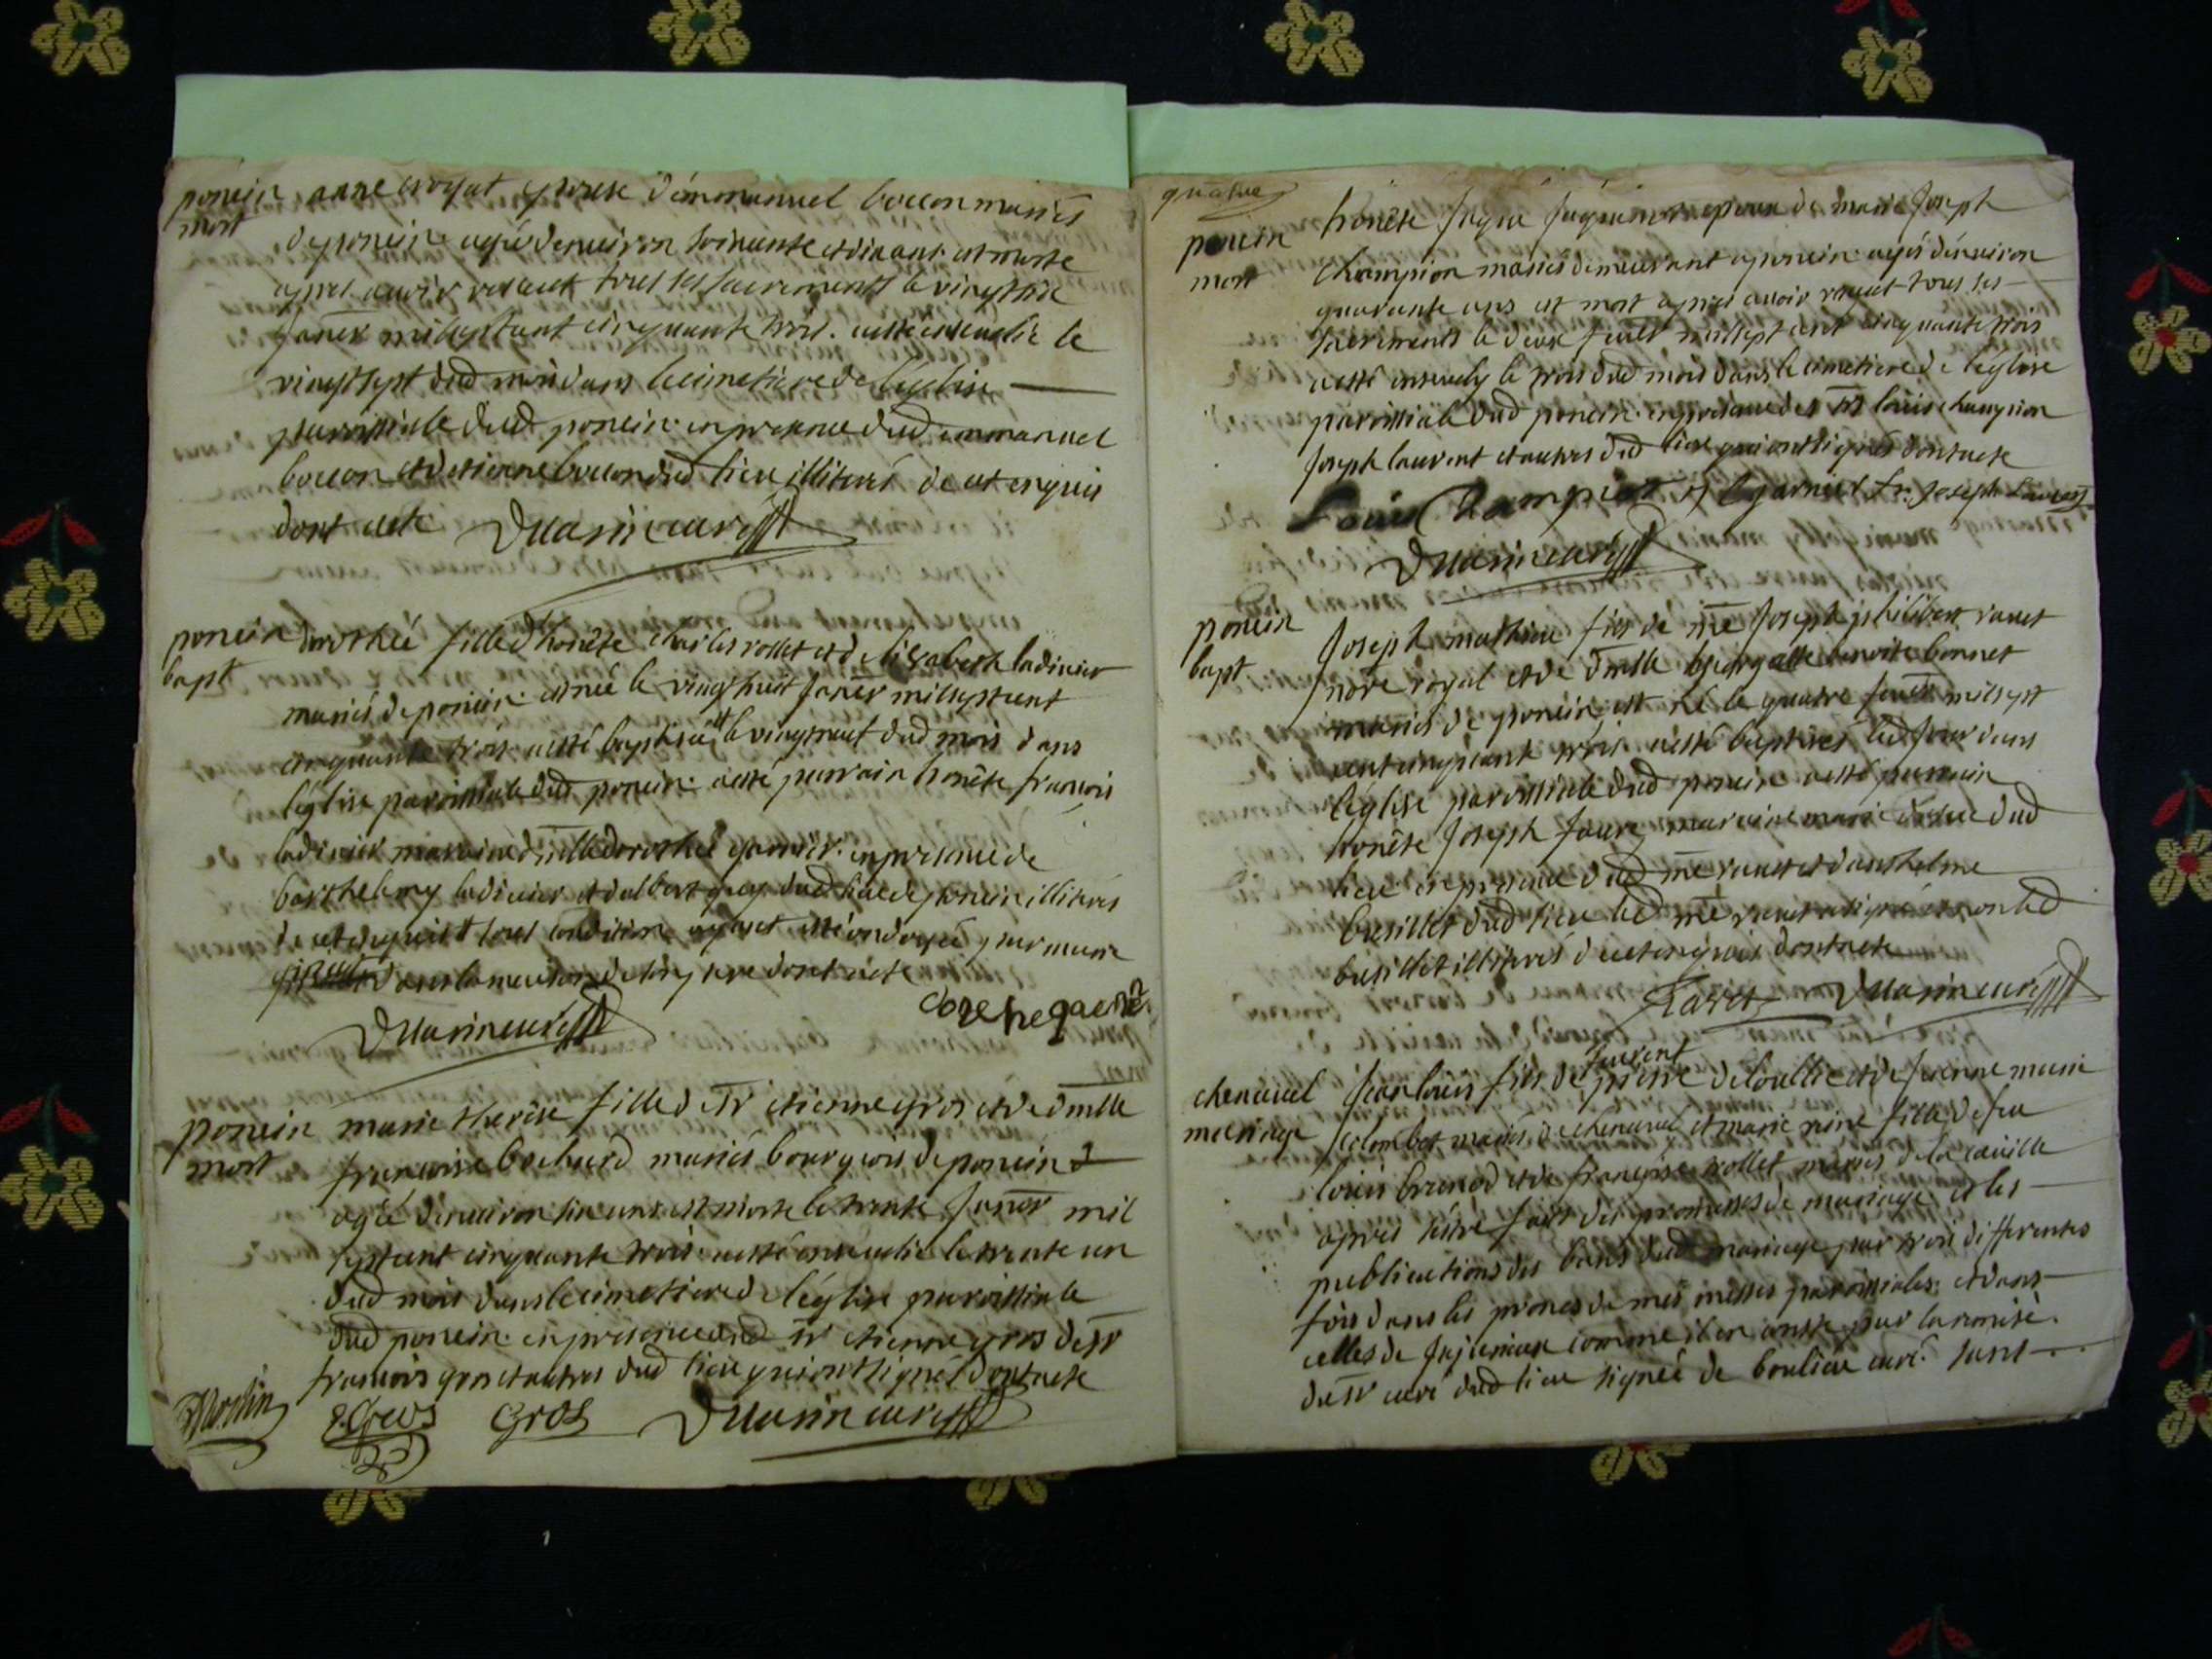 poncin anne croyat epouse d'emmanuel boccon mariés
mort
de poncin agée denviron soixante et dix ans est morte
apres avoir receut tous les sacrements le vingt six
janër mil sept cent cinquante trois. a esté ensevelie le
vingt sept dud mois dans le cimetiere de l'église
parroissiale dud poncin en presence dud emmanuel
boccon et d'etienne boccon dud lieu illiterés de ce enquis
dont acte
poncin dorothée fille d'honête charles rollet et d'elisabeth ladinier
bapt
mariés de poncin née le vingt huit janër mil sept cent
cinquante trois a esté baptisée le vingt neuf dud mois dans
l'église parroissiale dud poncin a esté parrain honête francois
ladinier marraine dmlle dorothée garnier en presence de
barthelemy ladinier et dalbert dud lieu de poncin illiterés
de ce enquis sous condition ayant esté ondoyée par marie
dans la maison de son pere dont acte
poncin marie therese fille d et sr etienne gros et de dmlle
mort
francoise bochard mariés bourgeois de poncin
agée denviron six ans est morte le trente janër mil
sept cent cinquante trois a esté ensevelie le trente un
dud mois dans le cimettiere de l'église parroissiale
dud poncin en presence dud sr etienne gros de sr
francois gros et autres dud lieu qui ont signés dont acte
Gros
quatre
poncin honête epoux de marie joseph
mort champion mariés demeurant a poncin agés d'environ
quarante ans est mort apres avoir receut tous les
sacrements le deux fever mil sept cent cinquante trois
a esté ensevely le trois dud mois dans le cimetiere de l'église
parroissiale dud poncin en presence des srs louis champion
joseph laurent et autres dud lieu qui ont signés dont acte
Louis Champion garnier joseph Laurent
poncin joseph mathieu fils de me joseph philibert ravet
bapt nore royal et de dmlle benoite bonnet
mariés de poncin est né le quatre fever mil sept
cent cinquante trois a esté baptisés led jour dans
l'église parroissiale dud poncin a esté parrain
honête joseph faure marraine marie dud
lieu en presence dud me ravet et d'anthelme
busillet dud lieu led me ravet a signé et non led
busillet illiterés de ce enquis dont acte
Ravet
laurent
chenavel jean louis fils de pierre et de jeanne marie
mariage colombet mariés de chenavel et marie reine fille de feu
louis brunod et de françoise rollet mariés de la
apres s'estre fait des promesses de mariage et les
publications des bans dud mariage par trois differentes
fois dans les prones de mes messes parroissiales et dans
celles de jujurieux comme il en conste par la remise
du sr curé dud lieu signée de boulieu curé sans